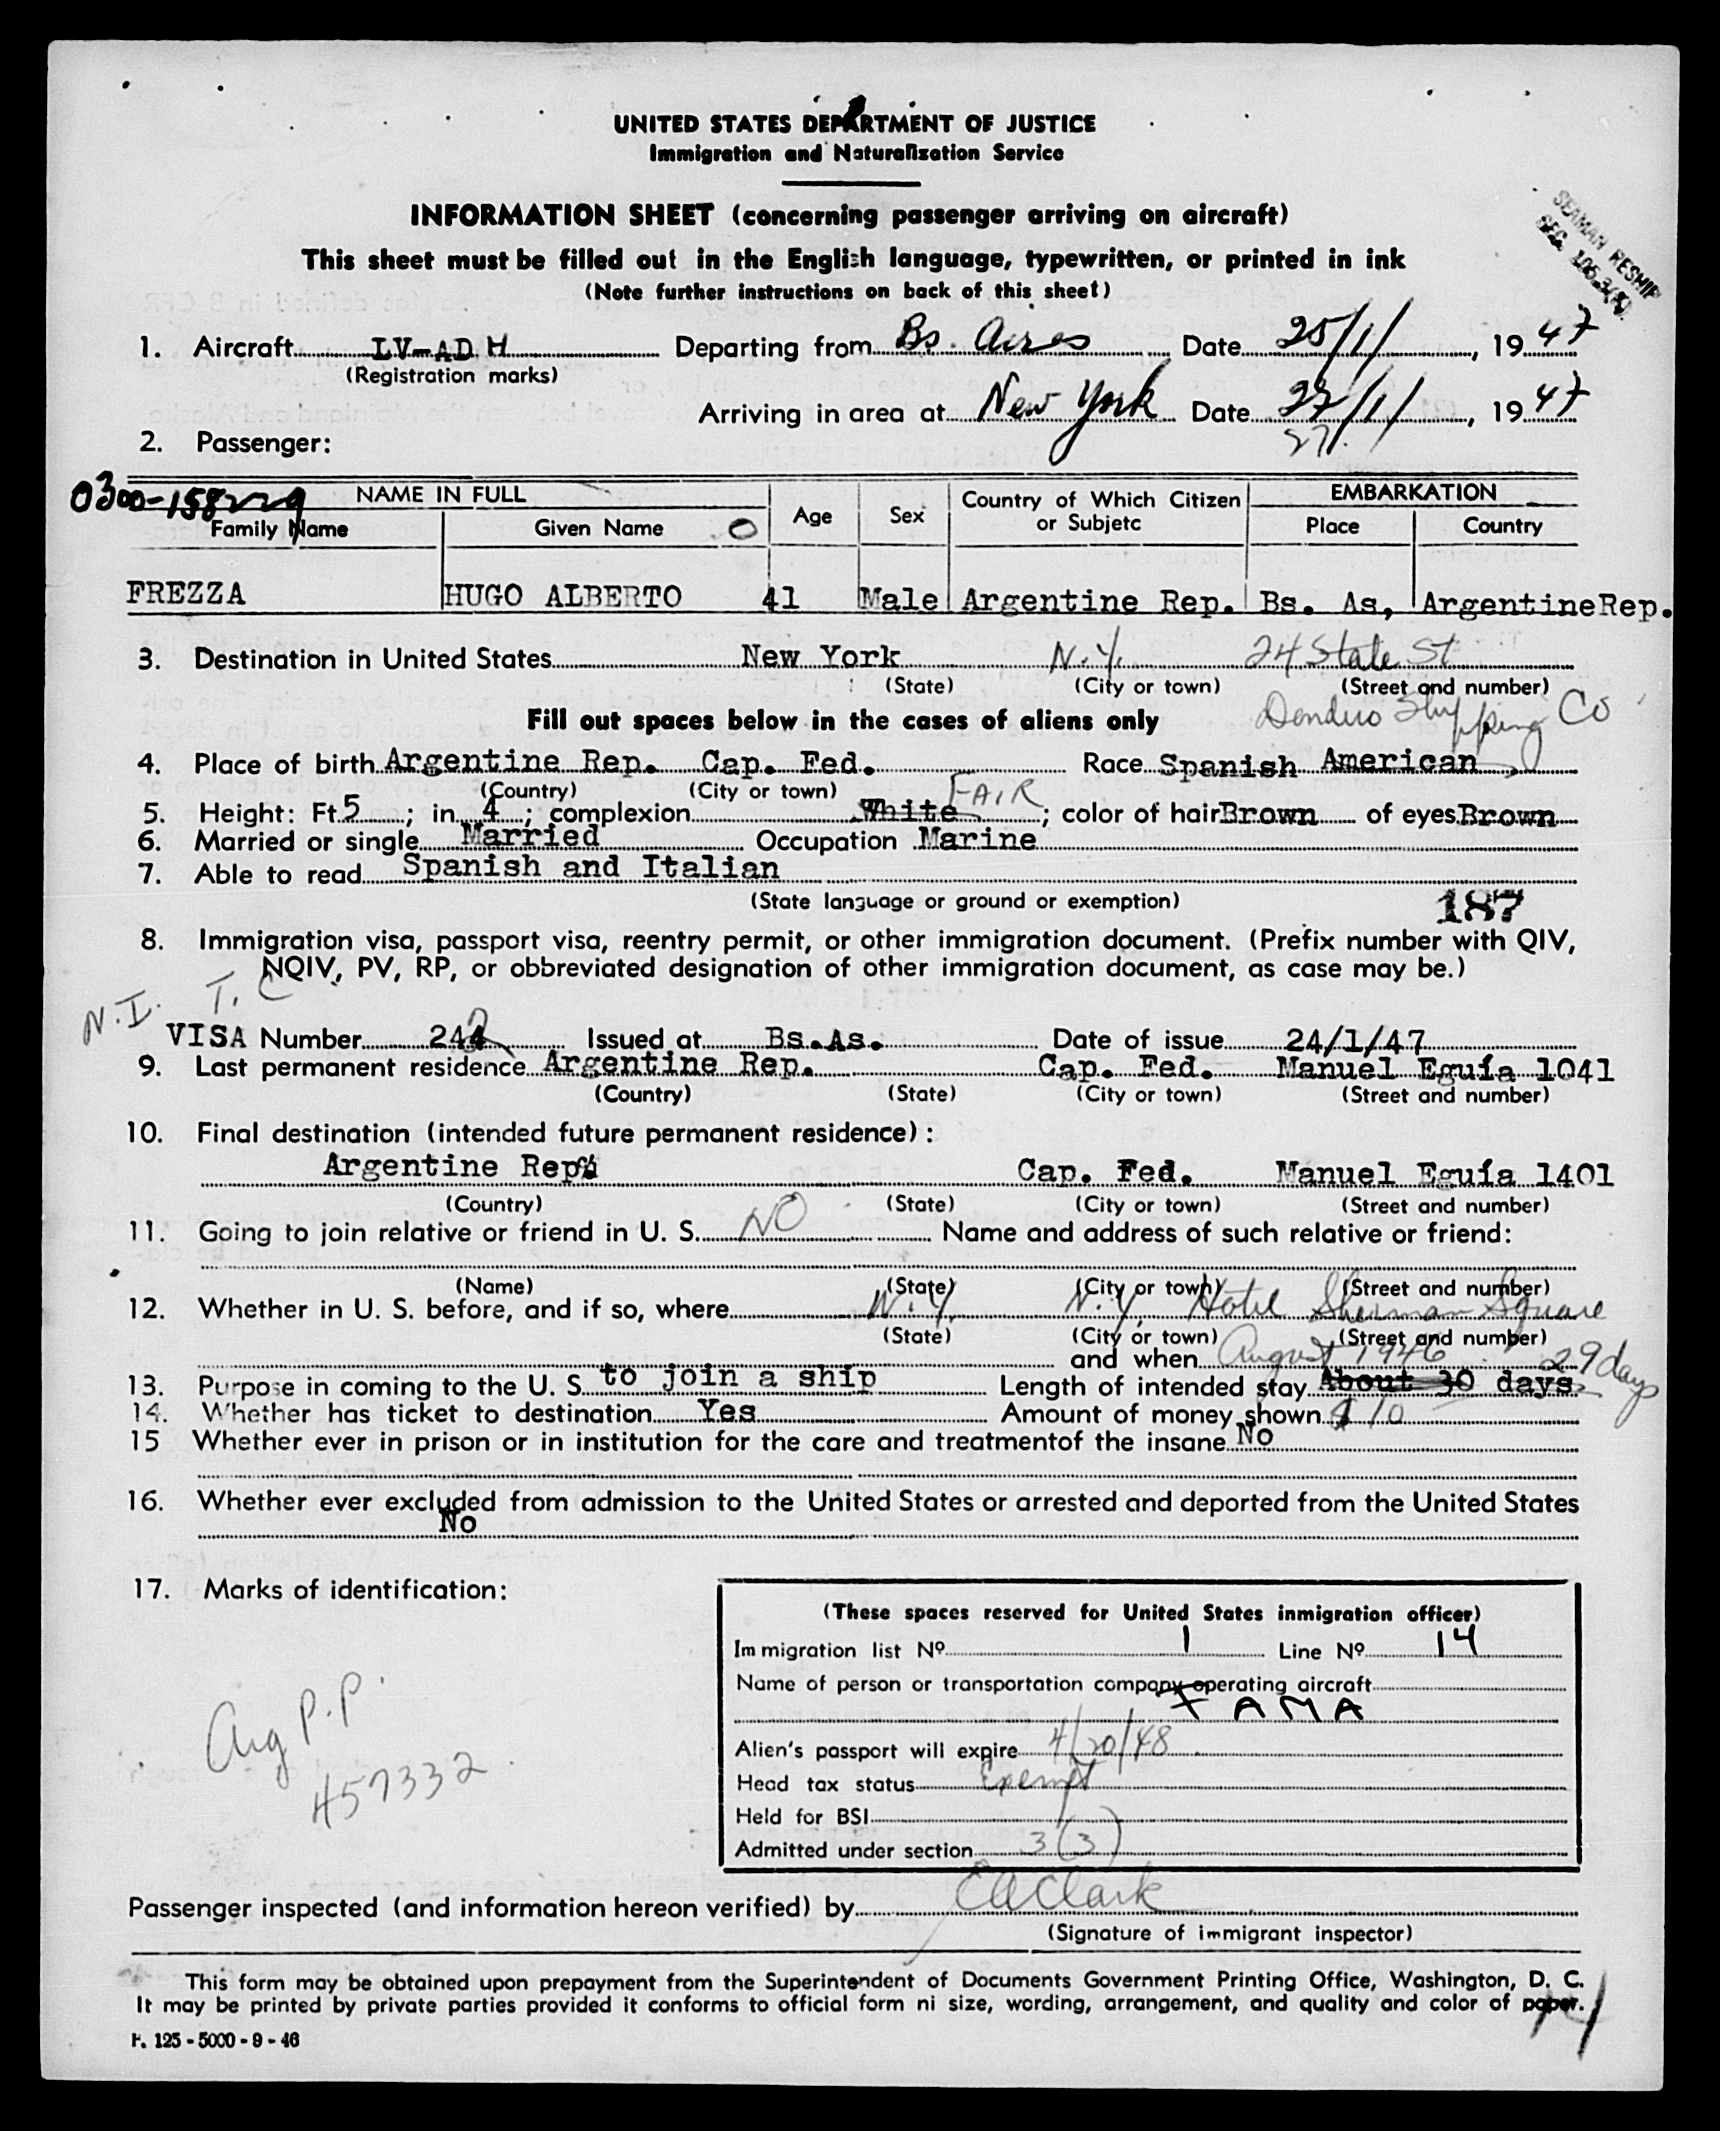 UNITED STATES DEPARTMENT OF JUSTICE
Immigration and Naturalization Service
INFORMATION SHEET (concerning passenger arriving on aircraft)
SEAMAN RESHIP
SEC. 106.3(A)
This sheet must be filled out in the English language, typewritten, or printed in ink
(Note further instructions on back of this sheet)
1. Aircraft LV-ADH Departing from Bs. Aires Date 25/1/, 1947
(Registration marks)
Arriving in area at New York Date 27/1/, 1947
27/
2. Passenger:
0300-158229
NAME IN FULL Age Sex Country of Which Citizen or Subjetc EMBARKATION
Family Name Given Name Place Country
FREZZA HUGO ALBERTO 41 Male Argentine Rep. Bs. As, Argentine Rep.
3. Destination in United States New York N.Y. 24 State St
(State) (City or town) (Street and number)
Fill out spaces below in the cases of aliens only Shipping Co
4. Place of birth Argentine Rep. Cap. Fed. Race Spanish American
(Country) (City or town) FAIR
5. Height: Ft. 5; in. 4; complexion White; color of hair Brown of eyes Brown
6. Married or single Married Occupation Marine
7. Able to read Spanish and Italian
(State language or ground or exemption)
187
8. Immigration visa, passport visa, reentry permit, or other immigration document. (Prefix number with QIV,
NQIV, PV, RP, or obbreviated designation of other immigration document, as case may be.)
N.I. T.C
VISA Number 242 Issued at Bs.As. Date of issue 24/1/47
9. Last permanent residence Argentine Rep. Cap. Fed. Manuel Eguía 1041
(Country) (State) (City or town) (Street and number)
10. Final destination (intended future permanent residece):
Argentine Rep. Cap. Fed. Manuel Eguía 1401
(Country) (State) (City or town) (Street and number)
11. Going to join relative or friend in U. S. NO Name and address of such relative or friend:
(Name) (State) (City or town) (Street and number)
12. Whether in U. S. before, and if so, where N.Y. N.Y. Hotel Sherman Square
(State) (City or town) (Street and number)
and when August 1946 29 days
13. Purpose in coming to the U. S. to join a ship Length of intended stay About 30 days
14. Whether has ticket to destination Yes Amount of money shown $10
15 Whether ever in prison or in institution for the care and treatmentof the insane No
16. Whether ever excluded from admission to the United States or arrested and deported from the United States
No
17. Marks of identification:
Arg P.P.
457332
(These spaces reserved for United States inmigration officer)
Immigration list Nº 1 Line Nº 14
Name of person or transportation company operating aircraft
FAMA
Alien's passport will expire 4/20/48
Head tax status Exempt
Held for BSI
Admitted under section 3(3)
Passenger inspected (and information hereon verified) by EAClark
(Signature of immigrant inspector)
This form may be obtained upon prepayment from the Superintendent of Documents Government Printing Office, Washington, D. C.
It may be printed by private parties provided it conforms to official form ni size, wording, arrangement, and quality and color of paper.
F. 125 - 5000 - 9 - 46